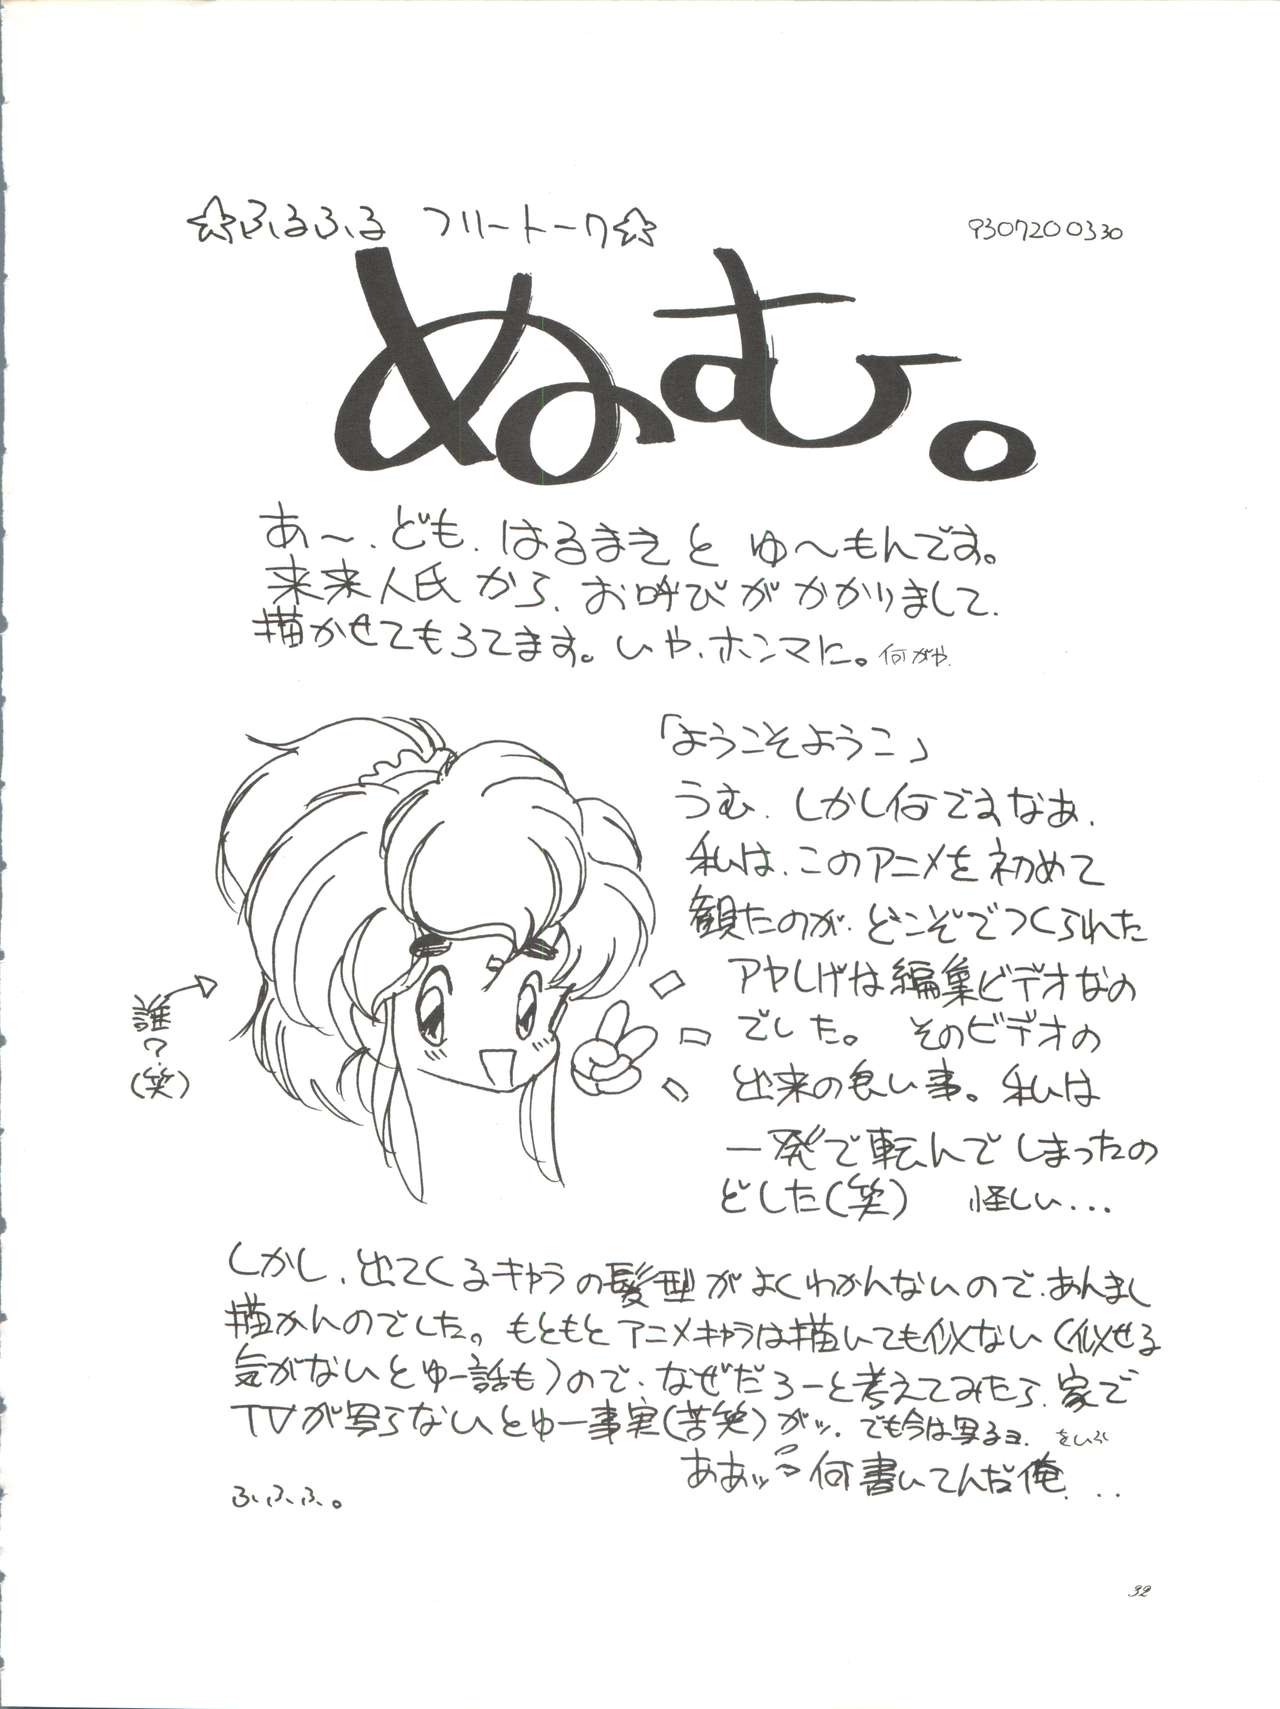 ☆ふるふる フリートーク☆
9307200330
ぬむ。
あ〜、ども、はるまきと ゆ〜もんです。
来来人氏から、お呼びがかかりまして、
描かせてもろてます。いや、ホンマに。何がや、
「ようこそようこ」
うむ、しかし何ですなあ、
私は、このアニメを初めて
観たのが、どこぞでつくられた
アヤしげは編集ビデオなの
でした。 そのビデオの
出来の良い事。私は
一発で転んでしまったの
どした(笑) 怪しい...
誰?
(笑)
しかし、出てくるキャラの髪型がよくわかんないので、あんまし
描かんのでした。もともとアニメキャラは描いても似ない(似せる
気がないとゆー話も)ので、なぜだろーと考えてみたら、家で
TVが写らないとゆー事実(苦笑)がッ、でも今は写るヨ、をいおい
ああッ 何書いてんだ俺...
ふ、ふ、ふ。
32